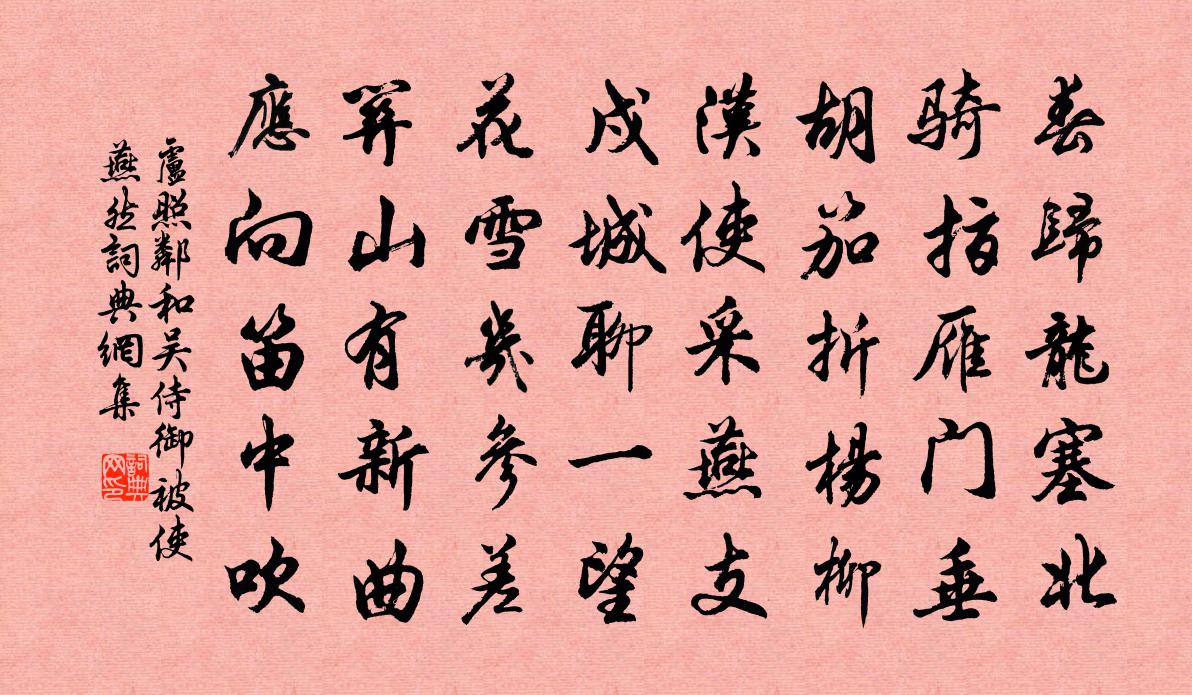 春歸龍塞北
騎指雁门垂
胡笳折楊柳
漢使采燕支
戍城聊一望
花雪幾參差
關山有新曲
應向笛中吹
盧照鄰和吴侍御被使
燕然詞典網集
詞典
网印